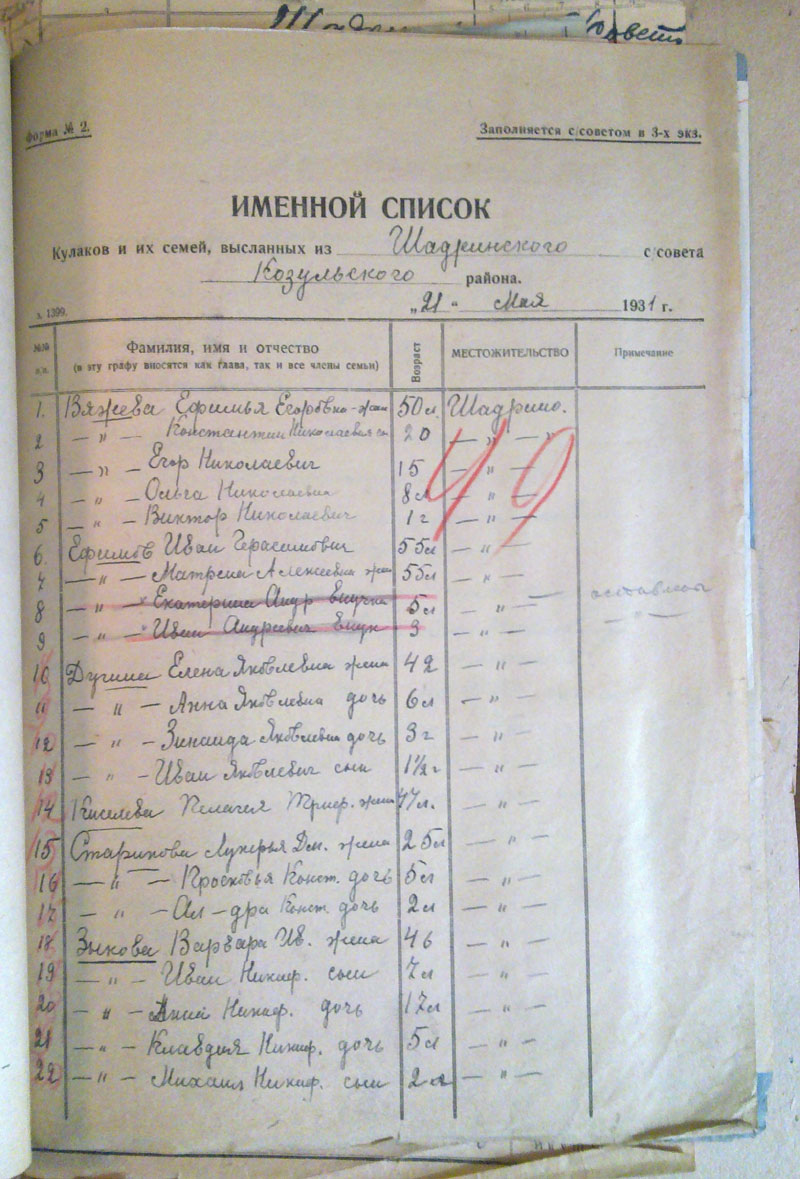 Форма № 2.
Заполняется с/советом в 3-х экз.
ИМЕННОЙ СПИСОК
Кулаков и их семей, высланных из Шадринского с/совета
Козульского района.
„21" Мая 1931 г.
з. 1399.
№№ п.п. Фамилия, имя и отчество (в эту графу вносятся как глава, так и все члены семьи) Возраст МЕСТОЖИТЕЛЬСТВО Примечание
1. Вяжева Ефимья Егоровна - жена 50 л. Шадрино.
2 — „ — Константин Николаевич сы 20 — „ — „
3 — „ — Егор Николаевич 15 — „ —
4 — „ — Ольга Николаевна 8 л — „ —
5 — „ — Виктор Николаевич 1 г — „ —
49
6. Ефимов Иван Герасимович 55 л — „ —
7 — „ — Матрена Алексеевна жена 55 л — „ —
8 — „ — Екатерина Андр Внучка 5 л — „ — — оставлены
9 — „ — Иван Андреевич Внук 3 — „ — — „ —
10 Елена Яковлевна жена 42 — „ —
11 — „ — Анна Яковлевна дочь 6 л — „ —
12 — „ — Зинаида Яковлевна дочь 3 г — „ —
13 — „ — Иван Яковлевич сын 1½ г — „ —
14 Киселева Пелагея жена 47 л. — „ —
15 Старикова Лукерья Дм. жена 25 л — „ —
16 — „ — Просковья Конст. дочь 5 л — „ —
17 — „ — Ал-дра Конст. дочь 2 л — „ —
18 Зыкова Варвара Ив. жена 46 — „ —
19 — „ — Иван Никиф. сын 7 л — „ —
20 — „ — Анна Никиф. дочь 17 л — „ —
21 — „ — Клавдия Никиф. дочь 5 л — „ —
22 — „ — Михаил Никиф. сын 2 л — „ —